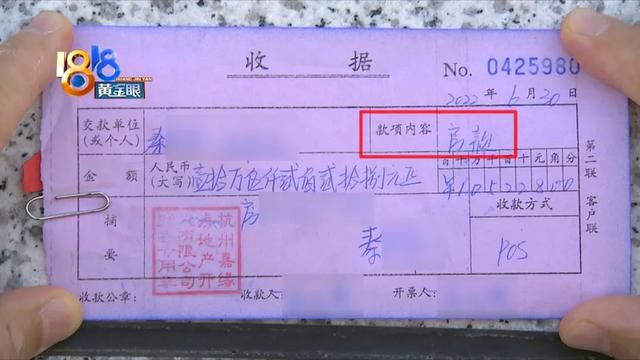 1818
黄金眼
收据
No. 0425980
2022年6月30日
交款单位
(或个人)
秦
款项内容
房款
金额
人民币
(大写)
壹拾万伍仟贰百贰拾捌元正
百十万千百十元角分
¥10522800
摘要
房
秦
收款方式
POS
杭州嘉缘
房地产开
发有限公司
收款公章:
收款人:
开票人:
第二联
客户联